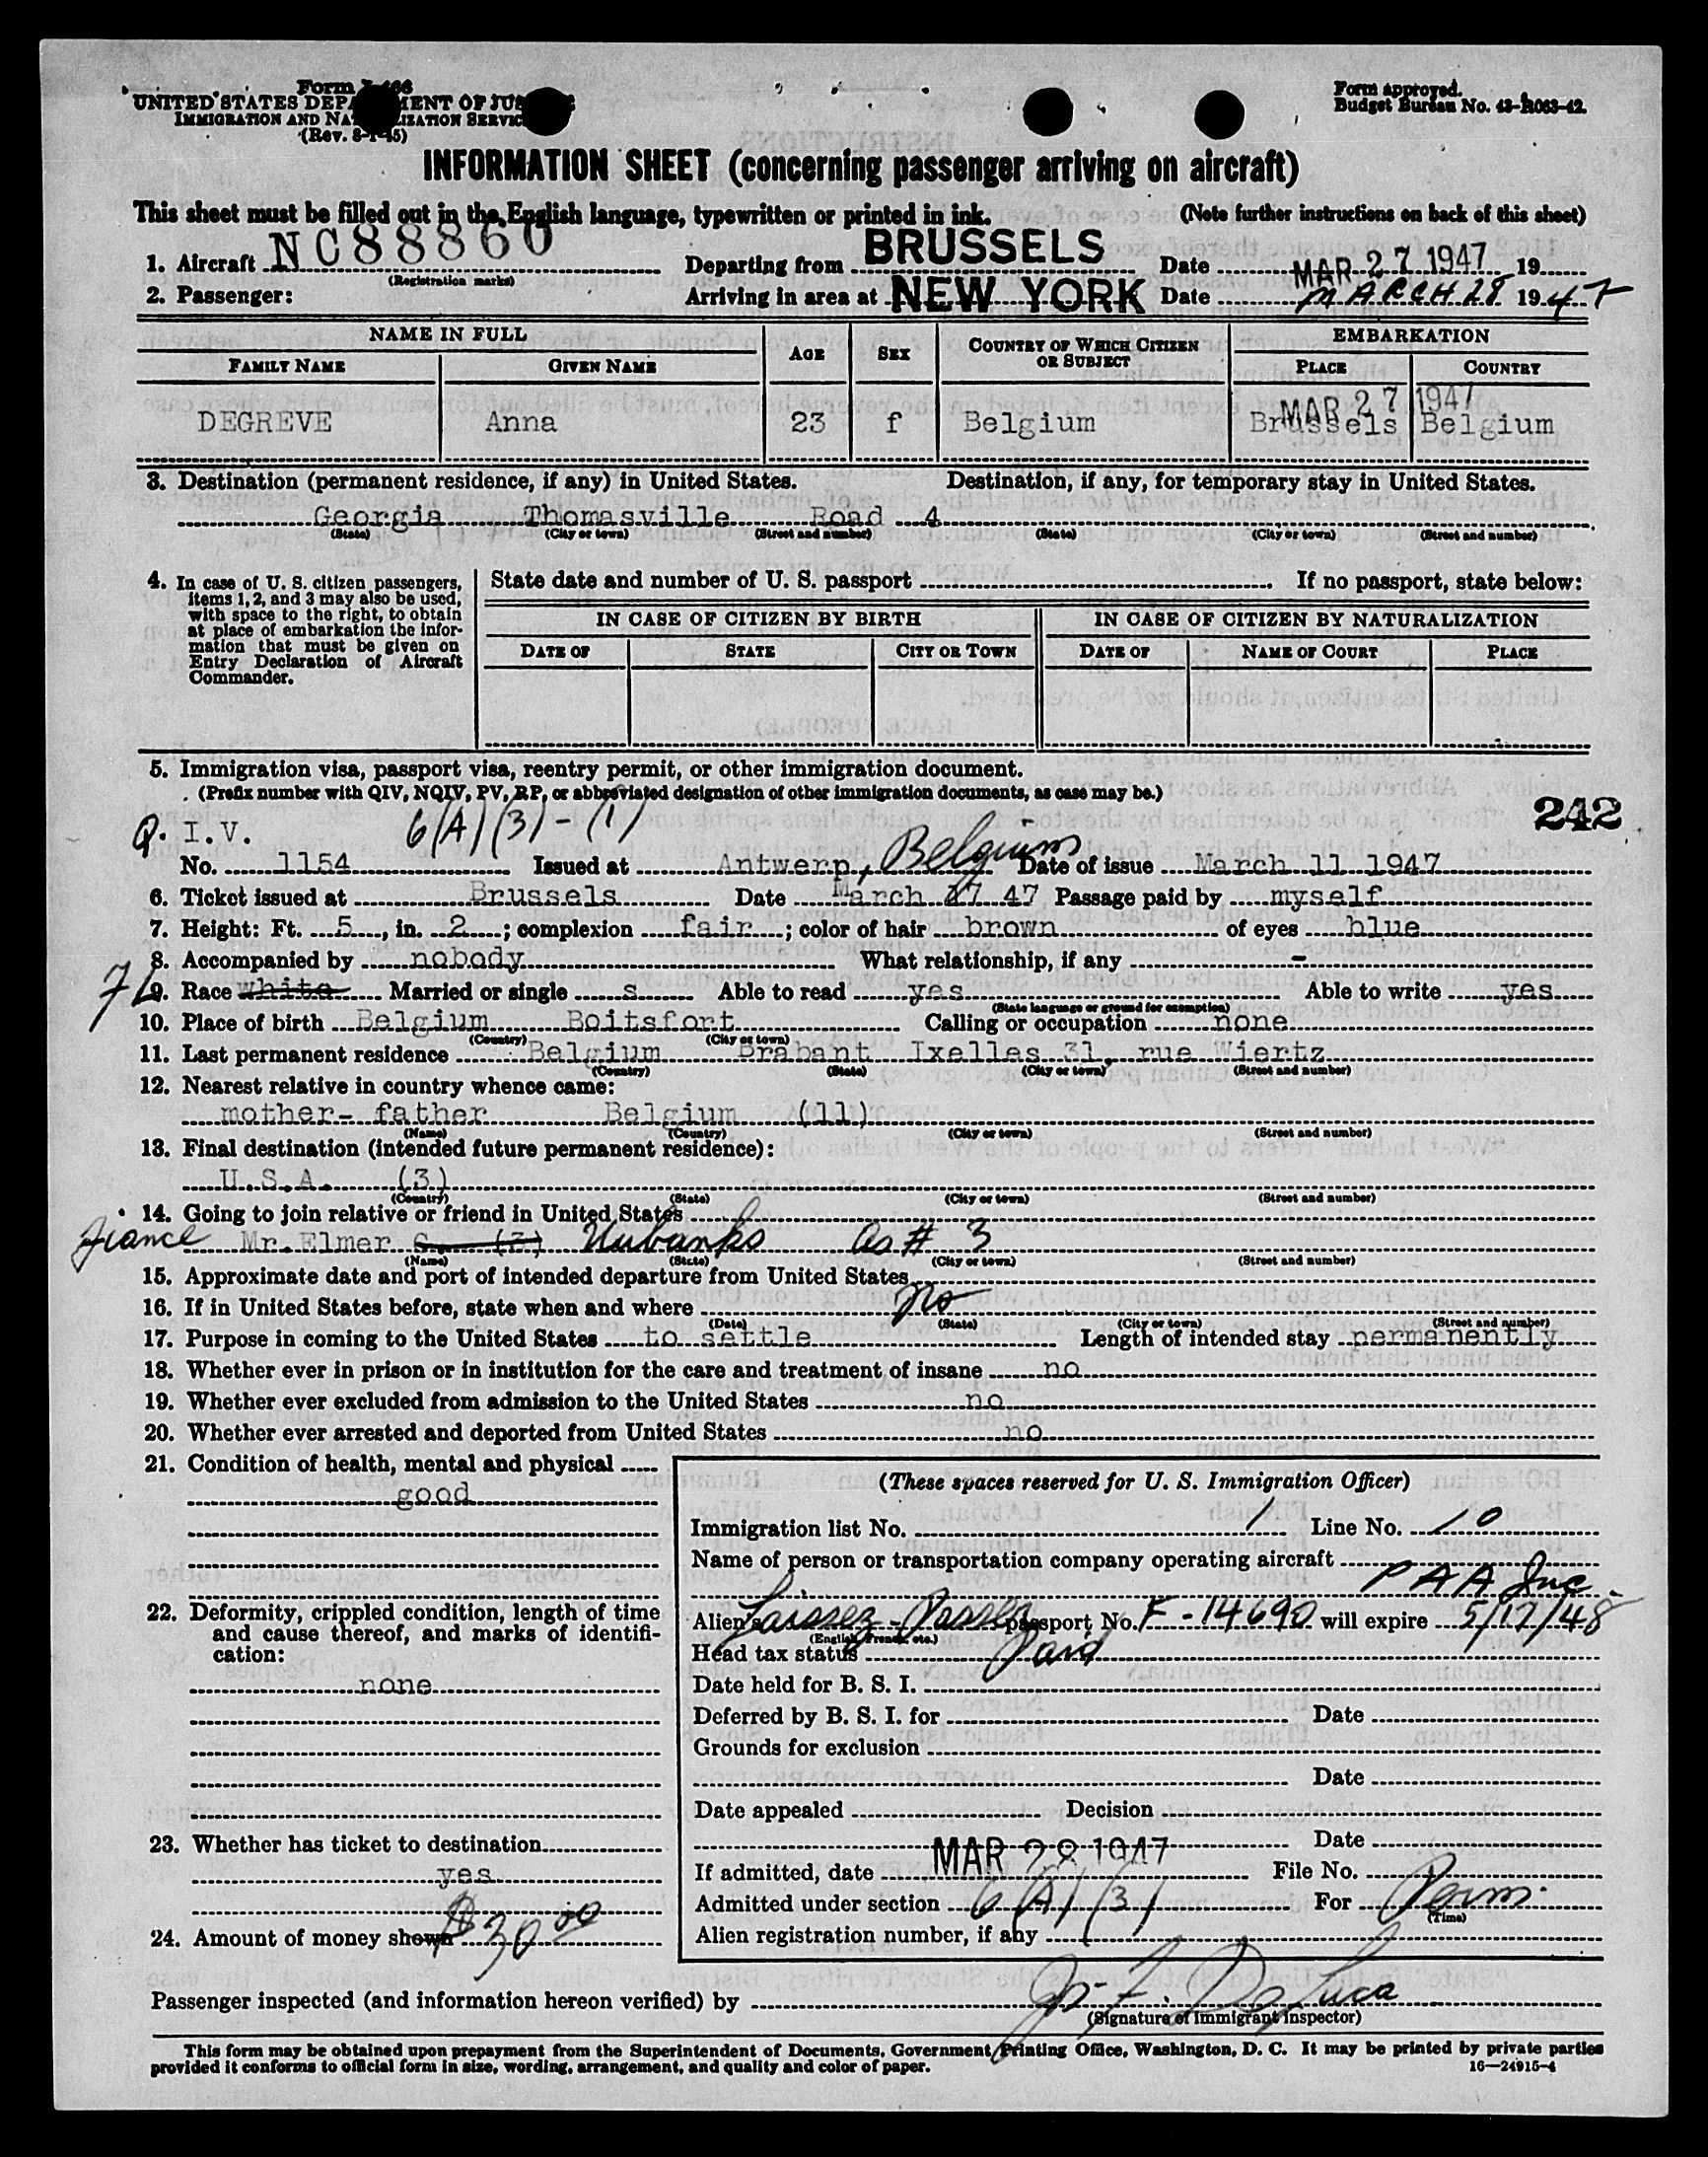 Form I-466
UNITED STATES DEPARTMENT OF JUSTICE
IMMIGRATION AND NATURALIZATION SERVICE
(Rev. 8-1-45)
Form approved.
Budget Bureau No. 43-R063-42.
INFORMATION SHEET (concerning passenger arriving on aircraft)
This sheet must be filled out in the English language, typewritten or printed in ink. (Note further instructions on back of this sheet)
1. Aircraft NC88860 Departing from BRUSSELS Date MAR 27 1947 19
(Registration marks)
2. Passenger: Arriving in area at NEW YORK Date MARCH 28 1947
NAME IN FULL AGE SEX COUNTRY OF WHICH CITIZEN OR SUBJECT EMBARKATION
FAMILY NAME GIVEN NAME PLACE COUNTRY
MAR 27 1947
DEGREVE Anna 23 f Belgium Brussels Belgium
3. Destination (permanent residence, if any) in United States. Destination, if any, for temporary stay in United States.
Georgia Thomasville Road 4
(State) (City or town) (Street and number) (State) (City or town) (Street and number)
4. In case of U. S. citizen passengers, items 1, 2, and 3 may also be used, with space to the right, to obtain at place of embarkation the information that must be given on Entry Declaration of Aircraft Commander.
State date and number of U. S. passport If no passport, state below:
IN CASE OF CITIZEN BY BIRTH IN CASE OF CITIZEN BY NATURALIZATION
DATE OF STATE CITY OR TOWN DATE OF NAME OF COURT PLACE
5. Immigration visa, passport visa, reentry permit, or other immigration document.
(Prefix number with QIV, NQIV, PV, RP, or abbreviated designation of other immigration documents, as case may be.)
242
Q. I.V. 6(A)(3)-(1)
No. 1154 Issued at Antwerp, Belgium Date of issue March 11 1947
6. Ticket issued at Brussels Date March 27 47 Passage paid by myself
7. Height: Ft. 5, in. 2; complexion fair; color of hair brown of eyes blue
8. Accompanied by nobody What relationship, if any -
9. Race white Married or single s Able to read yes Able to write yes
(State language or ground for exemption)
10. Place of birth Belgium Boitsfort Calling or occupation none
(Country) (City or town)
11. Last permanent residence Belgium Brabant Ixelles 31, rue Wiertz
(Country) (State) (City or town) (Street and number)
12. Nearest relative in country whence came:
mother- father Belgium (11)
(Name) (Country) (City or town) (Street and number)
13. Final destination (intended future permanent residence):
U.S.A. (3)
(Country) (State) (City or town) (Street and number)
14. Going to join relative or friend in United States
fiance Mr. Elmer (3) as # 3
(Name) (State) (City or town) (Street and number)
15. Approximate date and port of intended departure from United States
16. If in United States before, state when and where no
(Date) (State) (City or town) (Street and number)
17. Purpose in coming to the United States to settle Length of intended stay permanently
18. Whether ever in prison or in institution for the care and treatment of insane no
19. Whether ever excluded from admission to the United States no
20. Whether ever arrested and deported from United States no
21. Condition of health, mental and physical
good
22. Deformity, crippled condition, length of time and cause thereof, and marks of identification:
none
23. Whether has ticket to destination
yes
24. Amount of money shown $30 00
(These spaces reserved for U. S. Immigration Officer)
Immigration list No. 1 Line No. 10
Name of person or transportation company operating aircraft
PAA Inc.
Alien's Laissez-Passer passport No. F-14690 will expire 5/17/48
(English, French, etc.)
Head tax status Paid
Date held for B. S. I.
Deferred by B. S. I. for Date
Grounds for exclusion
Date
Date appealed Decision
Date
If admitted, date MAR 28 1947 File No.
Admitted under section 6(A)(3) For Perm.
(Time)
Alien registration number, if any
Passenger inspected (and information hereon verified) by Jos. F. De Luca
(Signature of Immigrant Inspector)
This form may be obtained upon prepayment from the Superintendent of Documents, Government Printing Office, Washington, D. C. It may be printed by private parties
provided it conforms to official form in size, wording, arrangement, and quality and color of paper. 16—24915-4